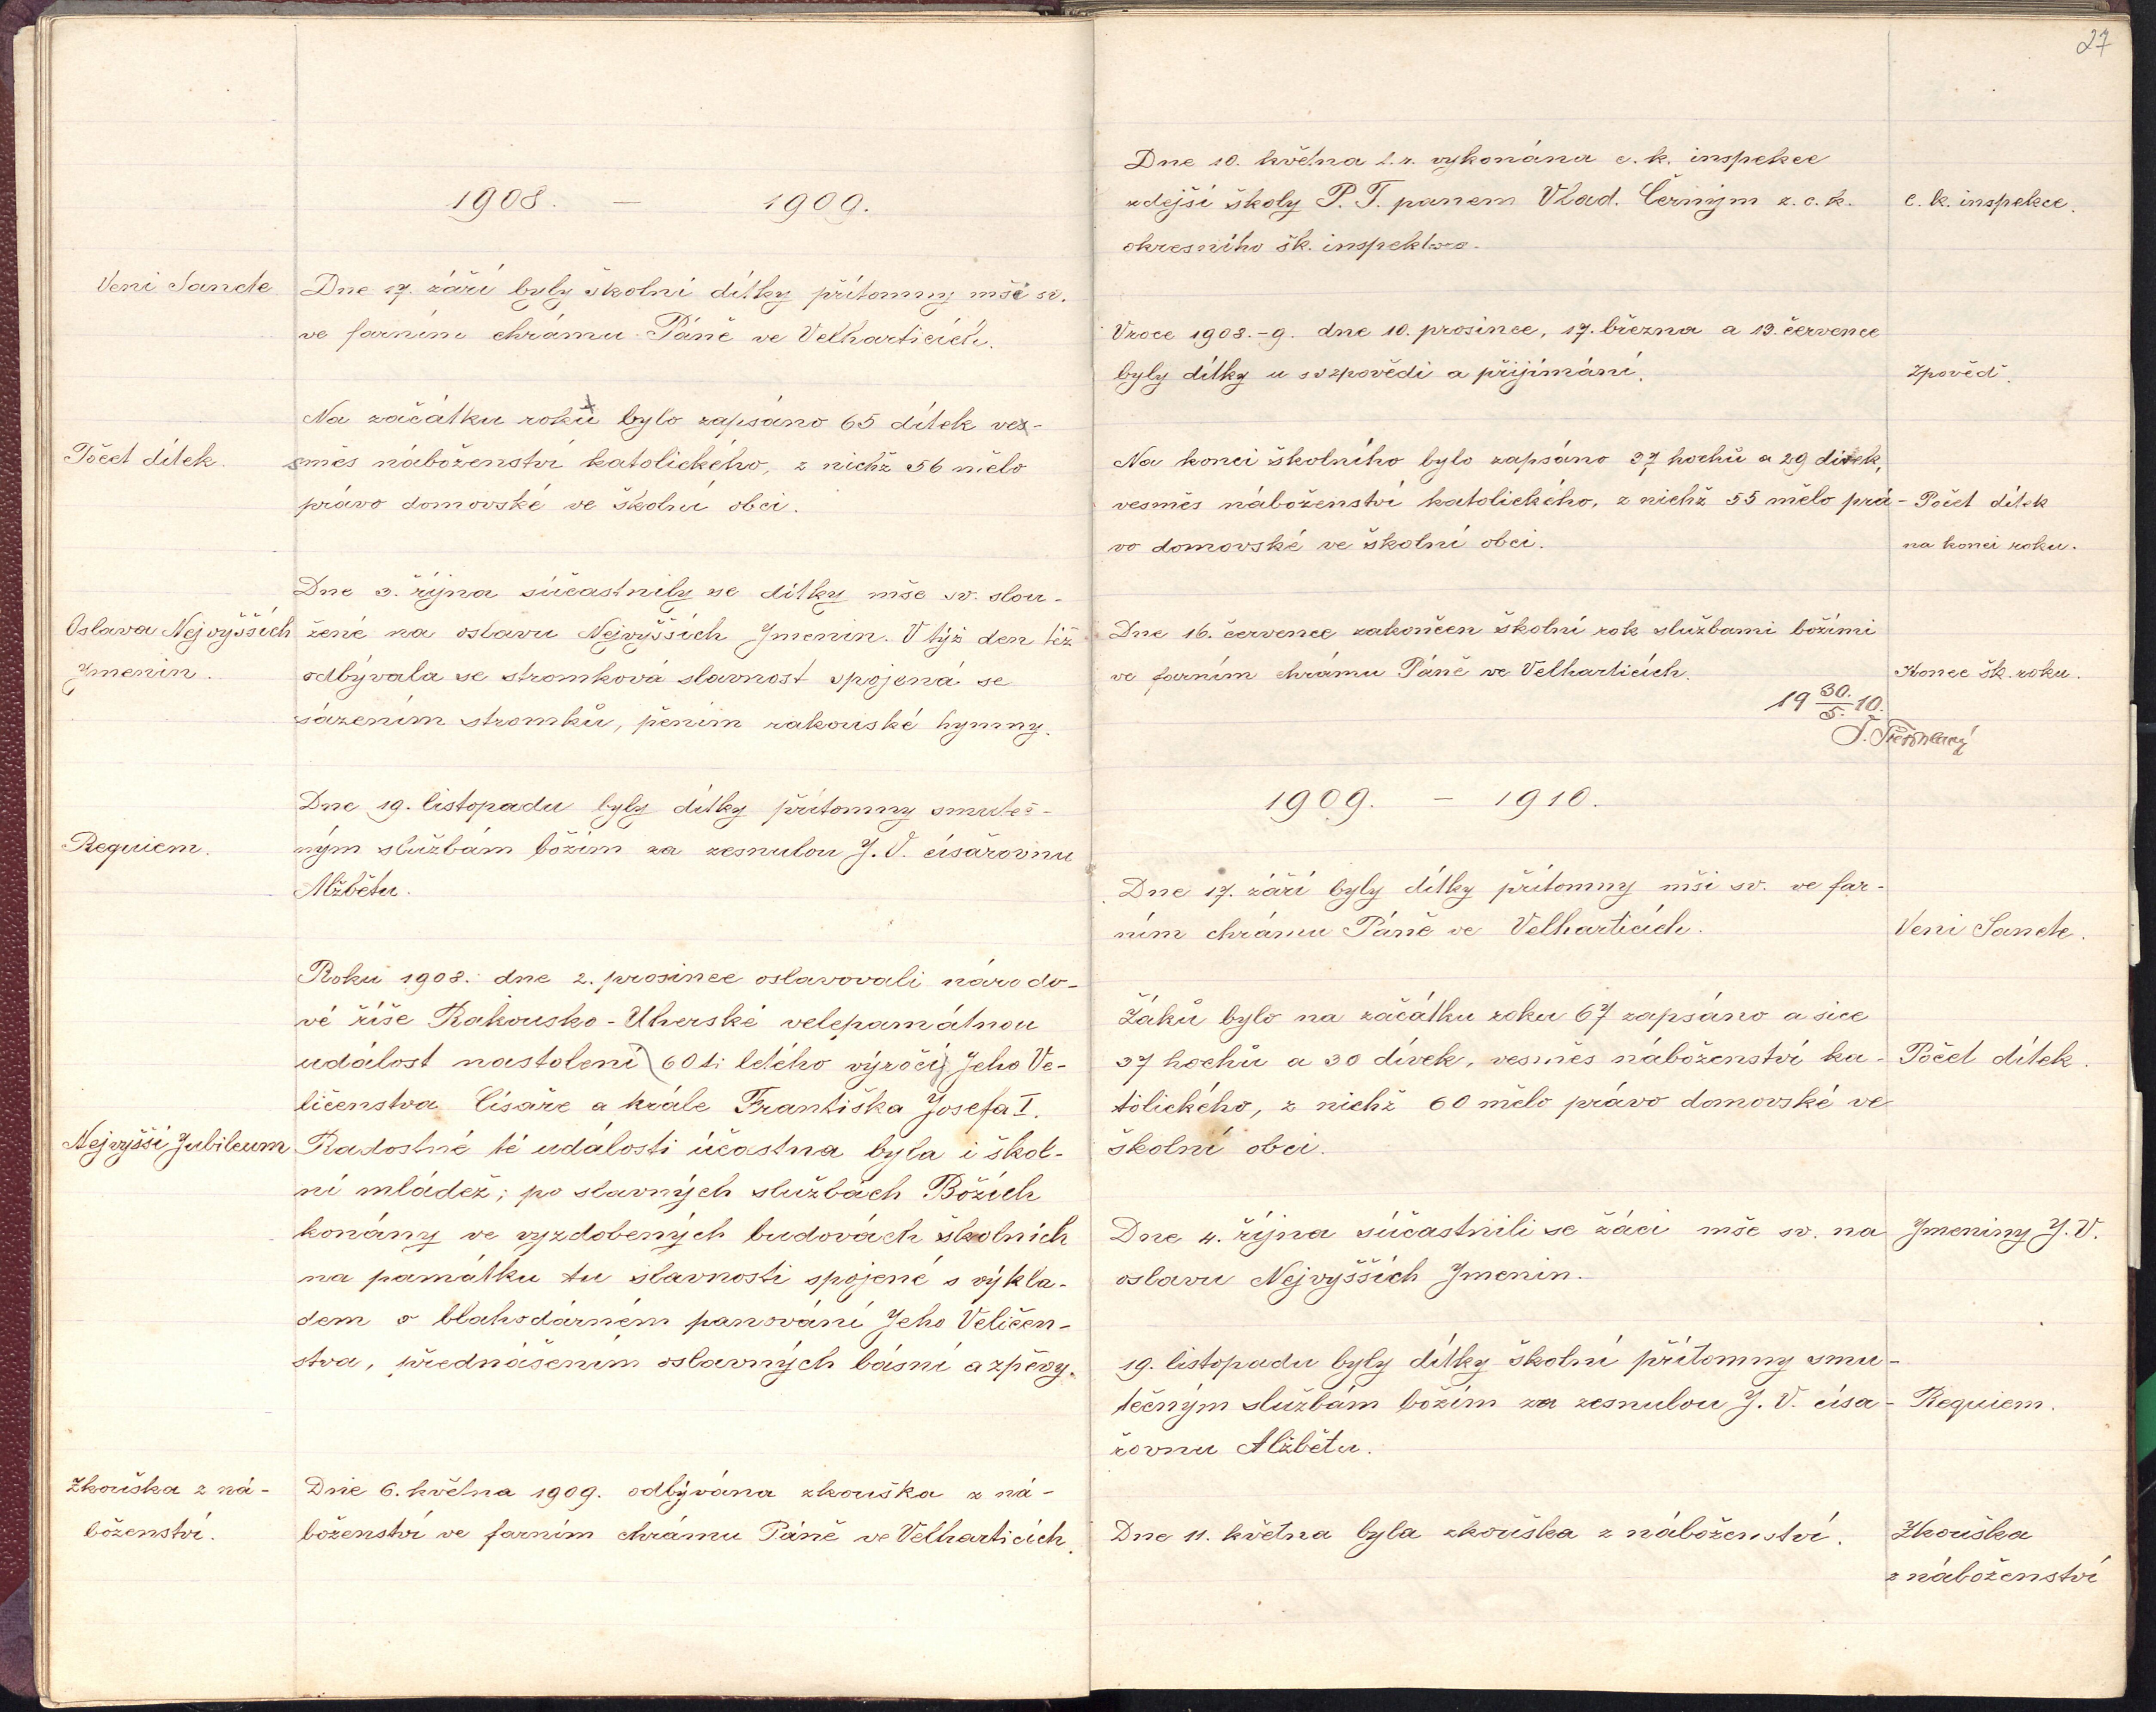 1908. — 1909.
Veni Sancte
Dne 17. září byly školní dítky přítomny mši sv.
ve farním chrámu Páně ve Velharticích.
Na začátku roku bylo zapsáno 65 dítek ves-
Počet dítek.
směs náboženství katolického, z nichž 56 mělo
právo domovské ve školní obci.
Dne 3. října súčastnily se dítky mše sv. slou-
Oslava Nejvyšších
žené na oslavu Nejvyšších Jmenin. V týž den též
Jmenin.
odbývala se stromková slavnost spojená se
sázením stromků, pěním rakouské hymny.
Dne 19. listopadu byly dítky přítomny smuteč-
Requiem.
ným službám božím za zesnulou J. V. císařovnu
Alžbětu.
Roku 1908. dne 2. prosince oslavovali národo-
vé říše Rakousko-Uherské velepamátnou
událost nastolení (60 ti letého výročí) Jeho Ve-
ličenstva Císaře a krále Františka Josefa I.
Nejvyšší Jubileum
Radostné té události účastna byla i škol-
ní mládež; po slavných službách Božích
konány ve vyzdobených budovách školních
na památku tu slavnosti spojené s výkla-
dem o blahodárném panování Jeho Veličen-
stva, přednášením oslavných básní a zpěvy.
Zkouška z ná-
Dne 6. května 1909. odbývána zkouška z ná-
boženství.
boženství ve farním chrámu Páně ve Velharticích.
27
Dne 10. května t. r. vykonána c. k. inspekce
zdejší školy P. T. panem Vlad. Černým z. c. k.
c. k. inspekce.
okresního šk. inspektora.
Vroce 1908.-9. dne 10. prosince, 17. března a 13. července
byly dítky u sv zpovědi a přijímání.
Zpověď.
Na konci školního bylo zapsáno 37 hochů a 29 dívek,
vesměs náboženství katolického, z nichž 55 mělo prá-
Počet dítek
vo domovské ve školní obci.
na konci roku.
Dne 16. července zakončen školní rok službami božími
ve farním chrámu Páně ve Velharticích.
Konec šk. roku.
19 30./5. 10.
1909. — 1910.
Dne 17. září byly dítky přítomny mši sv. ve far-
ním chrámu Páně ve Velharticích.
Veni Sancte.
Žáků bylo na začátku roku 67 zapsáno a sice
37 hochů a 30 dívek, vesměs náboženství ka-
Počet dítek.
tolického, z nichž 60 mělo právo domovské ve
školní obci.
Dne 4. října súčastnili se žáci mše sv. na
Jmeniny J. V.
oslavu Nejvyšších Jmenin.
19. listopadu byly dítky školní přítomny smu-
tečným službám božím za zesnulou J. V. císa-
Requiem.
řovnu Alžbětu.
Dne 11. května byla zkouška z náboženství.
Zkouška
z náboženství